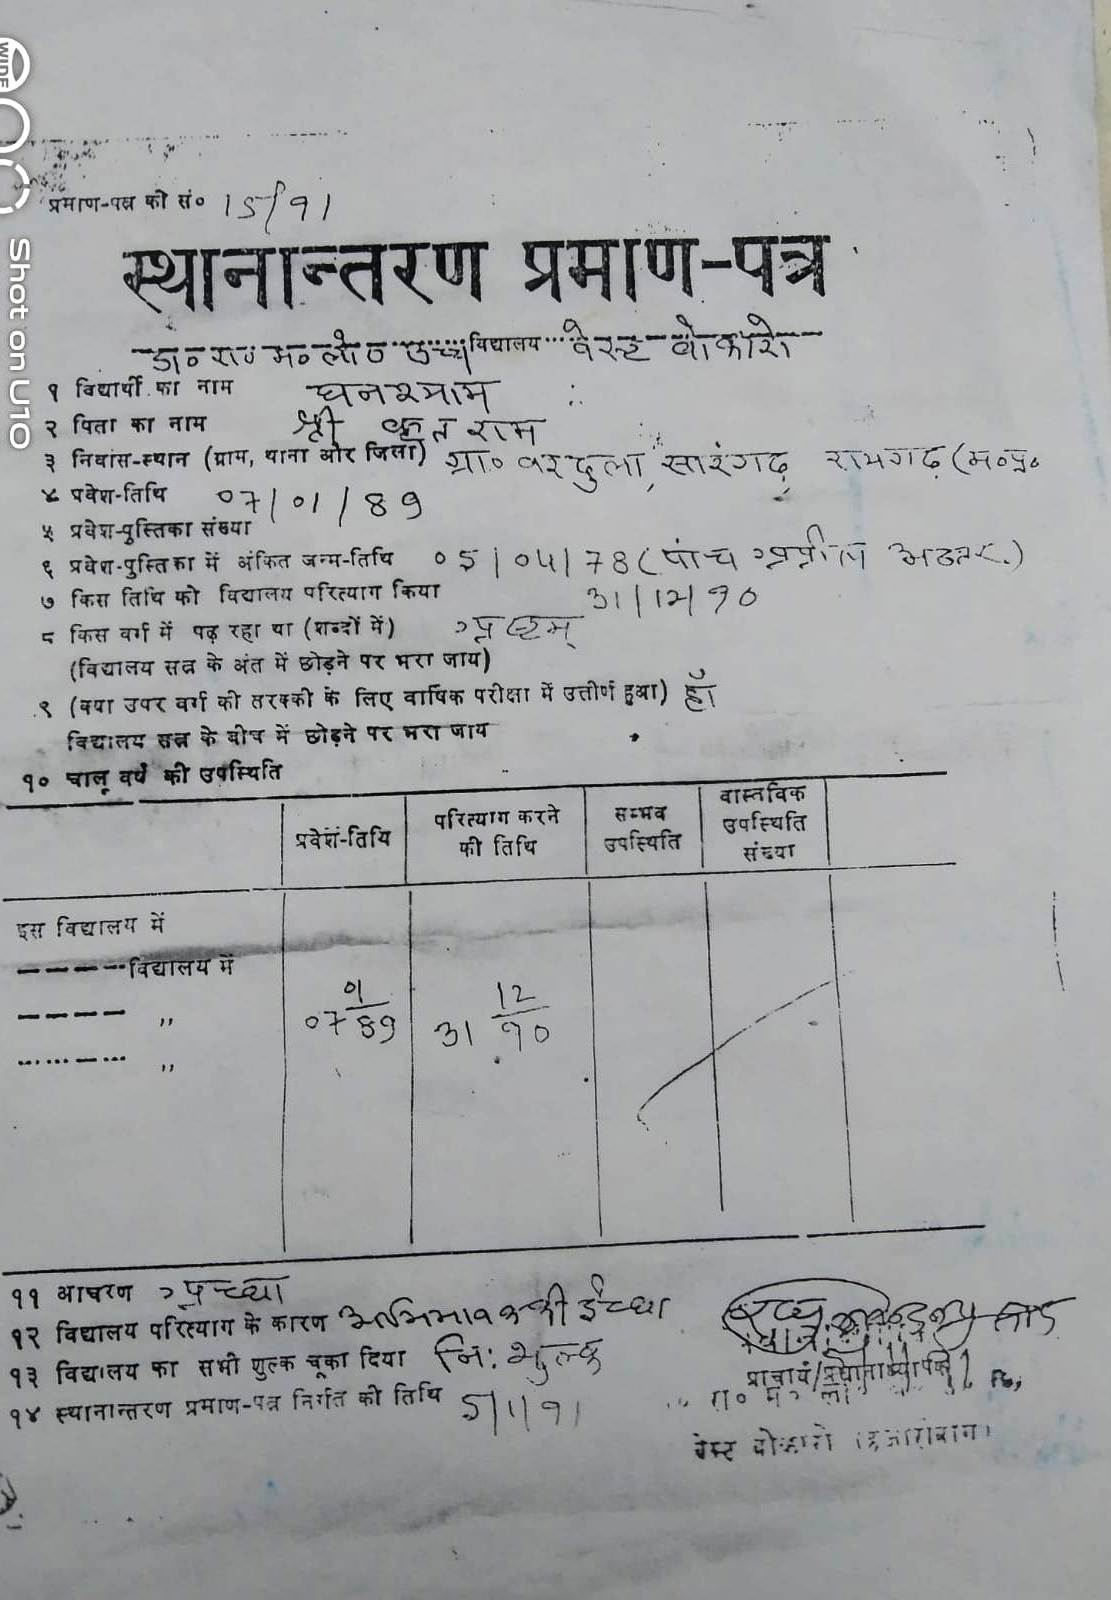 प्रमाण-पत्र की सं० 15/91
स्थानान्तरण प्रमाण-पत्र
डा० रा० म० लो० उच्च विद्यालय वेस्ट बोकारो
१ विद्यार्थी का नाम घनश्याम
२ पिता का नाम श्री राम
३ निवास-स्थान (ग्राम, थाना और जिला) ग्रा० बरदुला, सारंगढ़ रायगढ़ (म०प्र०
४ प्रवेश-तिथि 07/01/89
५ प्रवेश-पुस्तिका संख्या
६ प्रवेश-पुस्तिका में अंकित जन्म-तिथि 05/04/78 (पांच अप्रील अठत्तर.)
७ किस तिथि को विद्यालय परित्याग किया 31/12/90
८ किस वर्ग में पढ़ रहा था (शब्दों में) अष्टम्
(विद्यालय सत्र के अंत में छोड़ने पर भरा जाय)
९ (क्या उपर वर्ग की तरक्की के लिए वार्षिक परीक्षा में उत्तीर्ण हुआ) हाँ
विद्यालय सत्र के बीच में छोड़ने पर भरा जाय
१० चालू वर्ष की उपस्थिति
प्रवेश-तिथि परित्याग करने की तिथि सम्भव उपस्थिति वास्तविक उपस्थिति संख्या
इस विद्यालय में
-----विद्यालय में
---- ,, 07 01/89 31 12/90
......-... ,,
११ आचरण अच्छा
१२ विद्यालय परित्याग के कारण अभिभावक की ईच्छा
१३ विद्यालय का सभी शुल्क चूका दिया नि: शुल्क
१४ स्थानान्तरण प्रमाण-पत्र निर्गत की तिथि 5/1/91
प्राचार्य/प्रधानाध्यापक
रा० म० लो
वेस्ट बोकारो (हजारीबाग)
WIDE
Shot on U10